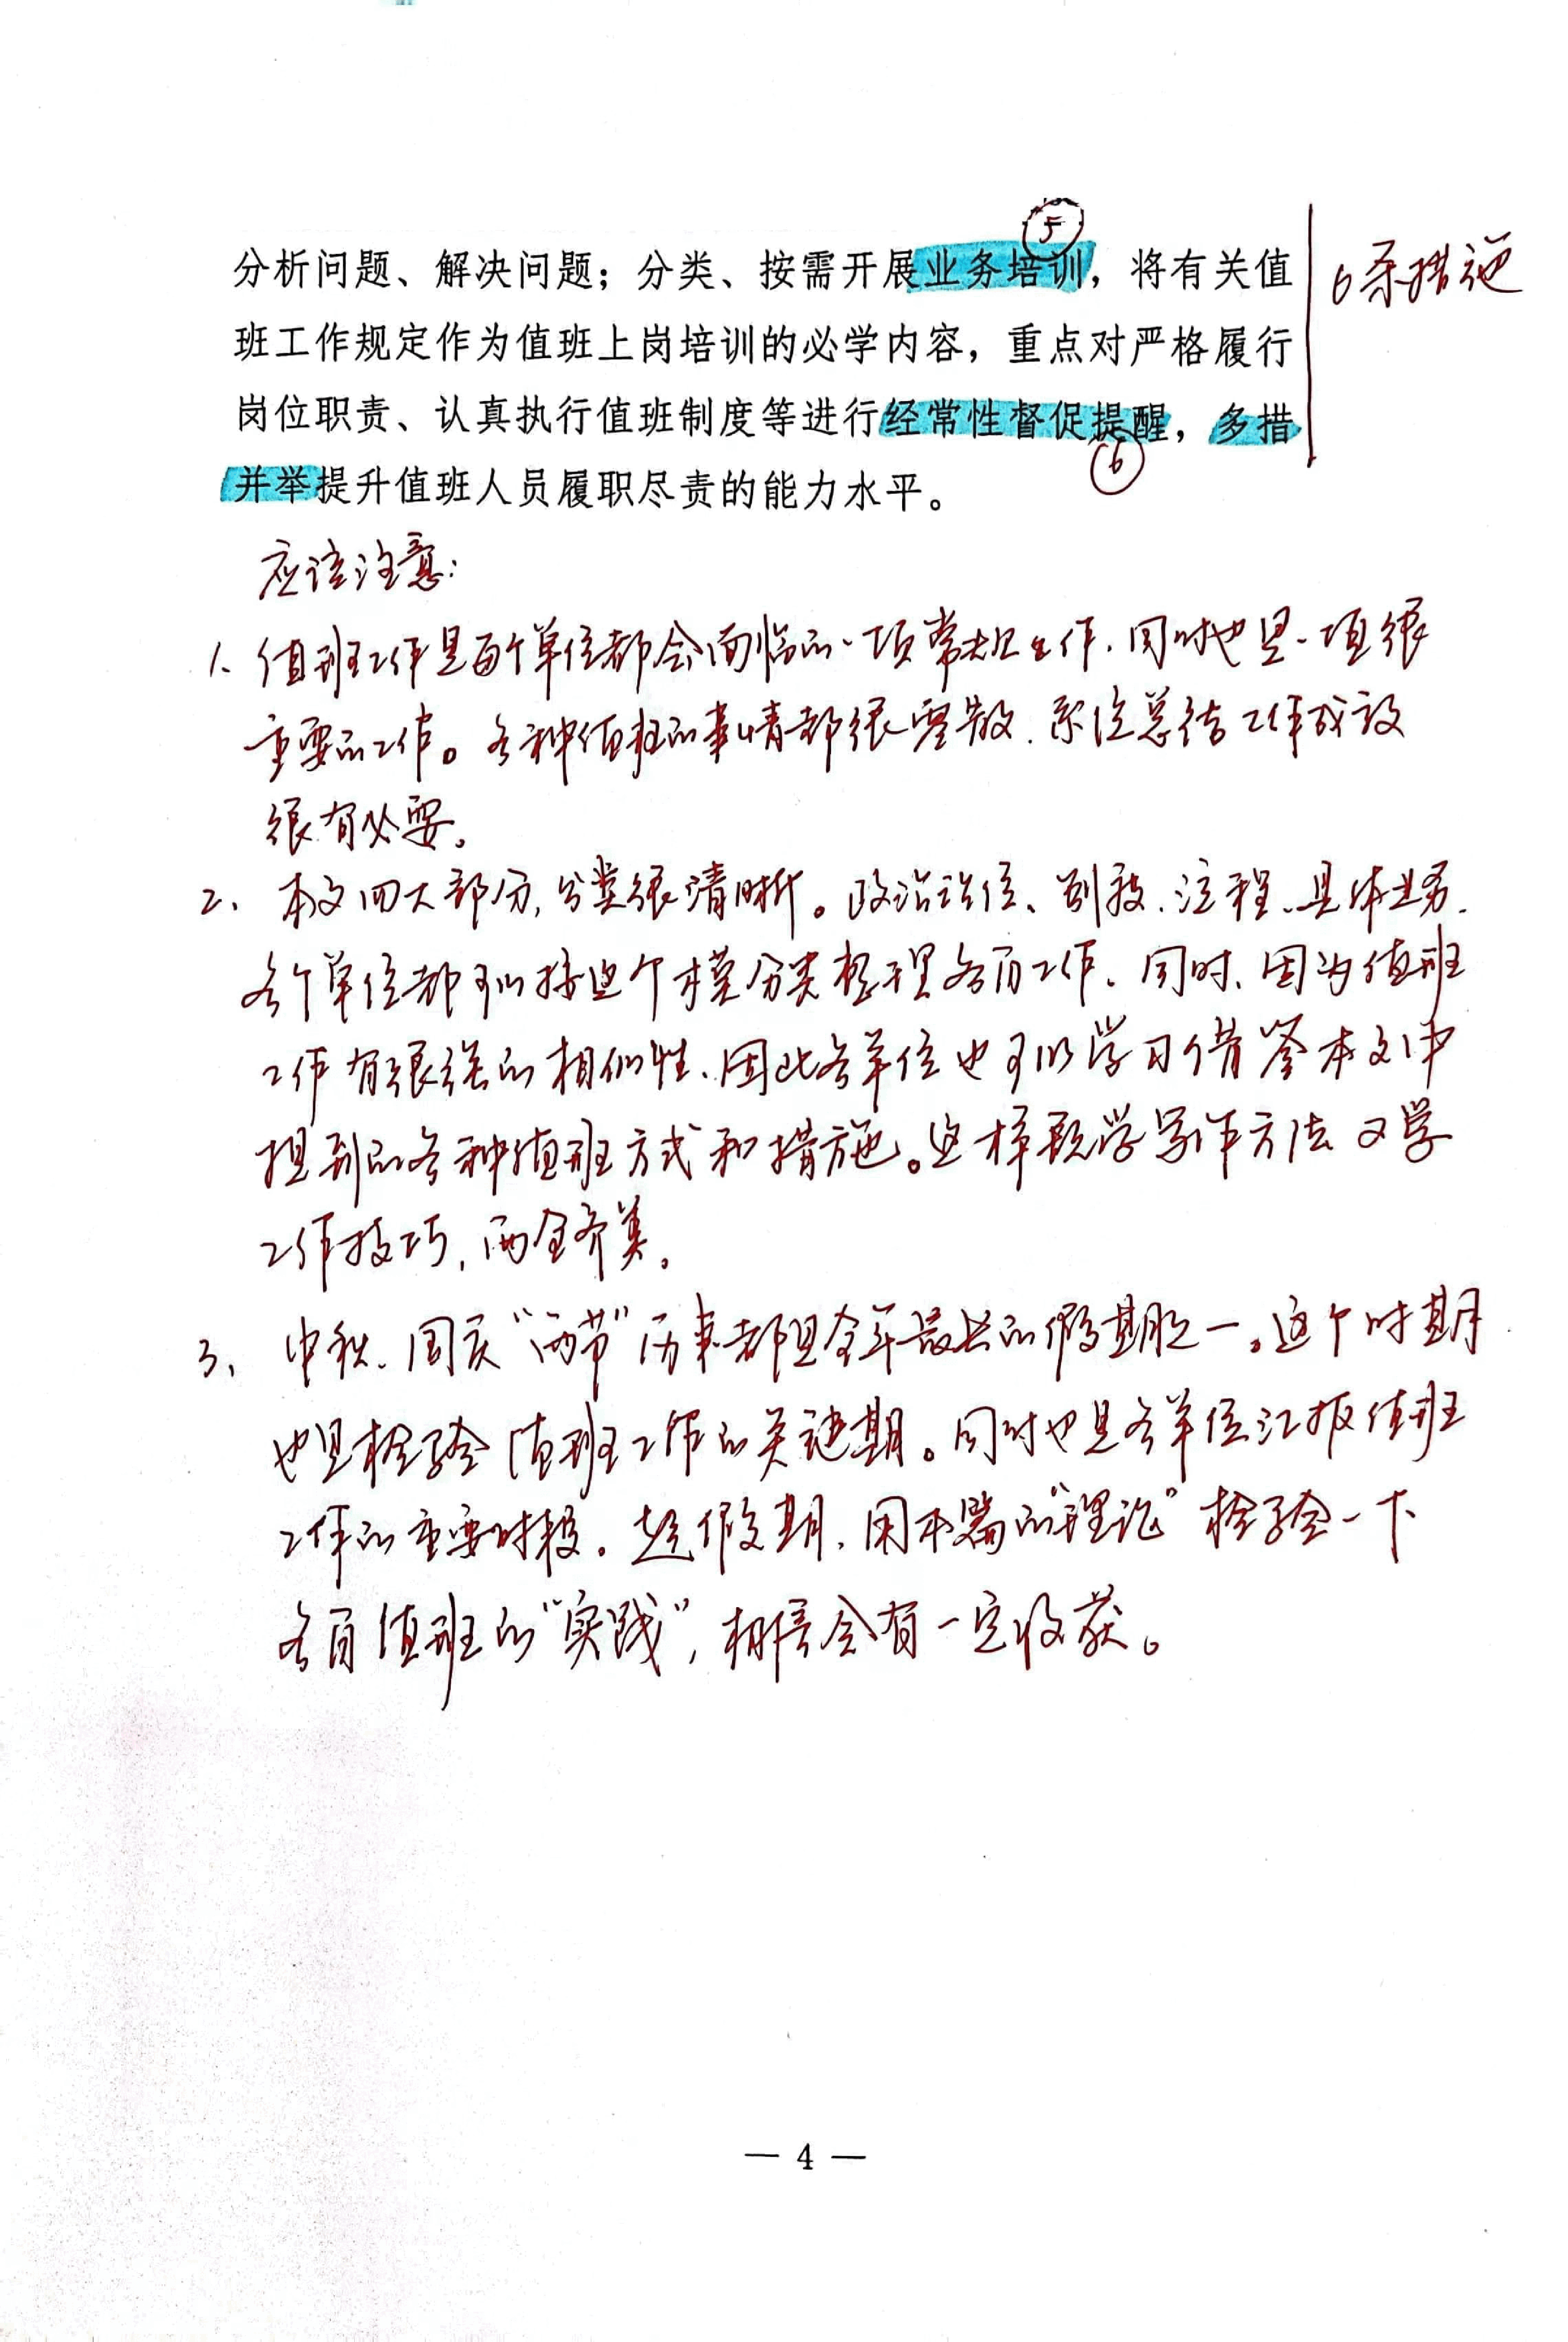 ⑤
分析问题、解决问题；分类、按需开展业务培训，将有关值
6条措施
班工作规定作为值班上岗培训的必学内容，重点对严格履行
岗位职责、认真执行值班制度等进行经常性督促提醒，多措
⑥
并举提升值班人员履职尽责的能力水平。
应该注意：
1、值班工作是每个单位都会面临的一项常规工作，同时也是一项很
重要的工作。各种值班的事情都很零散，系统总结工作成效
很有必要。
2、本文四大部分，分类很清晰。政治站位、制度、流程、具体业务，
各个单位都可以按这个模分类整理各自工作。同时，因为值班
工作有很强的相似性，因此各单位也可以学习借鉴本文中
提到的各种值班方式和措施。这样既学写作方法又学
工作技巧，两全齐美。
3、中秋、国庆“两节”历来都是全年最长的假期之一。这个时期
也是检验值班工作的关键期。同时也是各单位汇报值班
工作的重要时段。趁假期，用本篇的“理论”检验一下
各自值班的“实践”，相信会有一定收获。
— 4 —